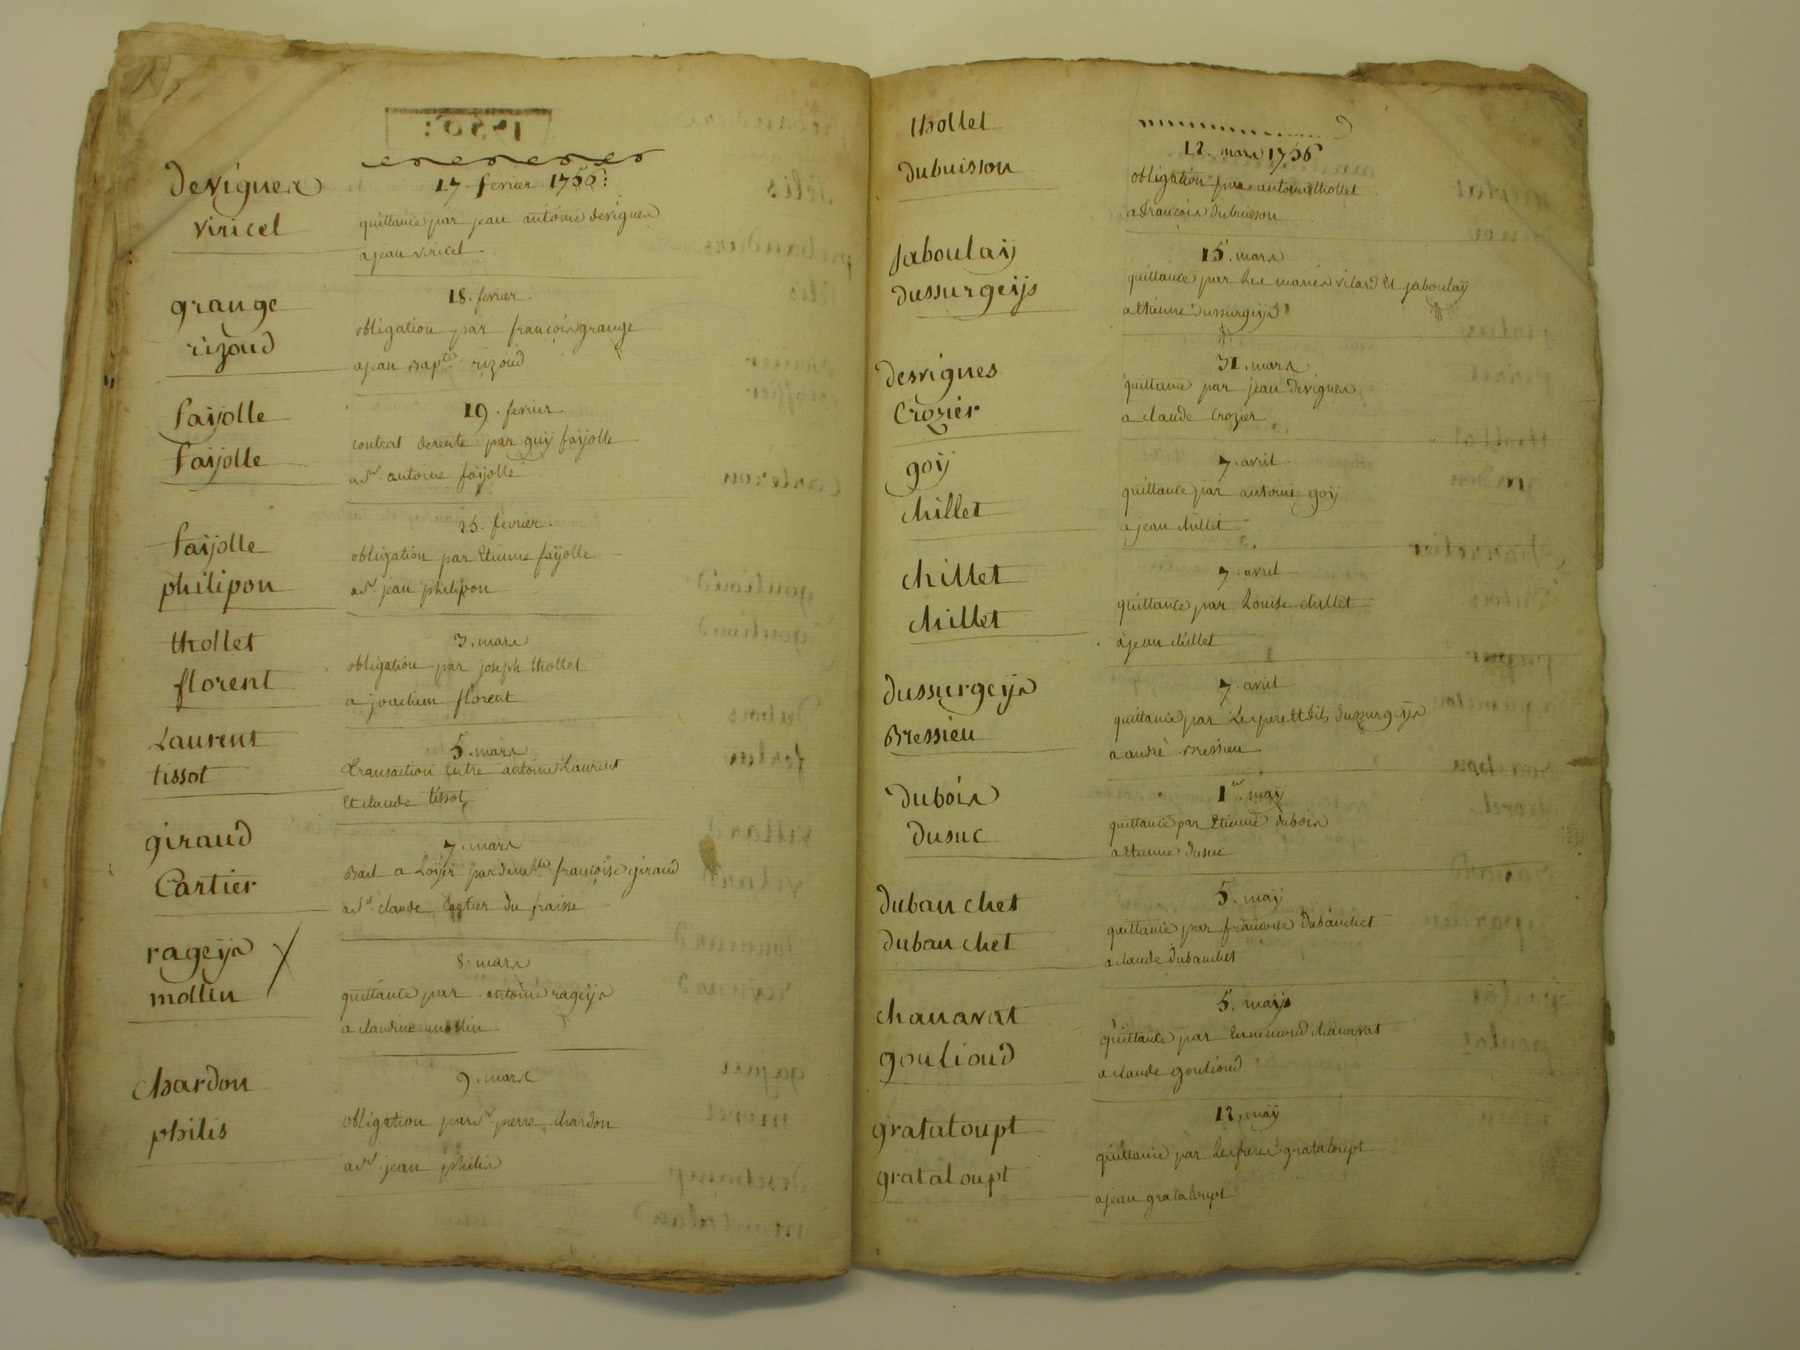 devignes
viricel
17. fevrier 1756:
quittance par jean antoine devignes
a jean viricel
grange
rizoud
18. fevrier.
obligation par françois grange
a jean Bap.te rizoud
fayolle
fayolle
19. fevrier.
contrat de rente par guÿ faÿolle
a Sr. antoine faÿolle
fayolle
philipon
25. fevrier.
obligation par Etienne faÿolle
a Sr. jean philipon
thollet
florent
3. mars
obligation par joseph thollet
a joachim florent
Laurent
tissot
5. mars
transaction Entre antoine Laurent
Et claude tissot
giraud
Cartier
7. mars
Bail a Loÿer par demelle françoise giraud
a Sr. claude Cartier du fraisse
rageÿs
mollin
8. mars
quittance par antoine rageÿs
a claudine mollin
chardon
philis
9. mars
obligation par Sr pierre chardon
a Sr. jean philis
thollet
dubuisson
12. mars 1756
obligation par antoine thollet
a françois dubuisson
jaboulaÿ
dussurgeÿs
15. mars
quittance par Les mariés vilard Et jaboulaÿ
a Etienne dussurgeÿs
desvignes
Crozier
31. mars
quittance par jean devignes
a claude Crozier
goÿ
chillet
7. avril
quittance par antoine goÿ
a jean chillet
chillet
chillet
7. avril
quittance par Louise chillet
a jean chillet
dussurgeÿs
Bressieu
7. avril
quittance par Les pere Et fils dussurgeÿs
a andré Bressieu
dubois
dusuc
1er. maÿ
quittance par Etienne dubois
a Etienne dusuc
dubanchet
dubanchet
5. maÿ
quittance par françoise dubanchet
a claude dubanchet
chanavat
goulioud
5. maÿ
quittance par Ennemond chanavat
a claude goulioud
grataloupt
grataloupt
12. maÿ
quittance par Les freres grataloupt
a jean grataloupt